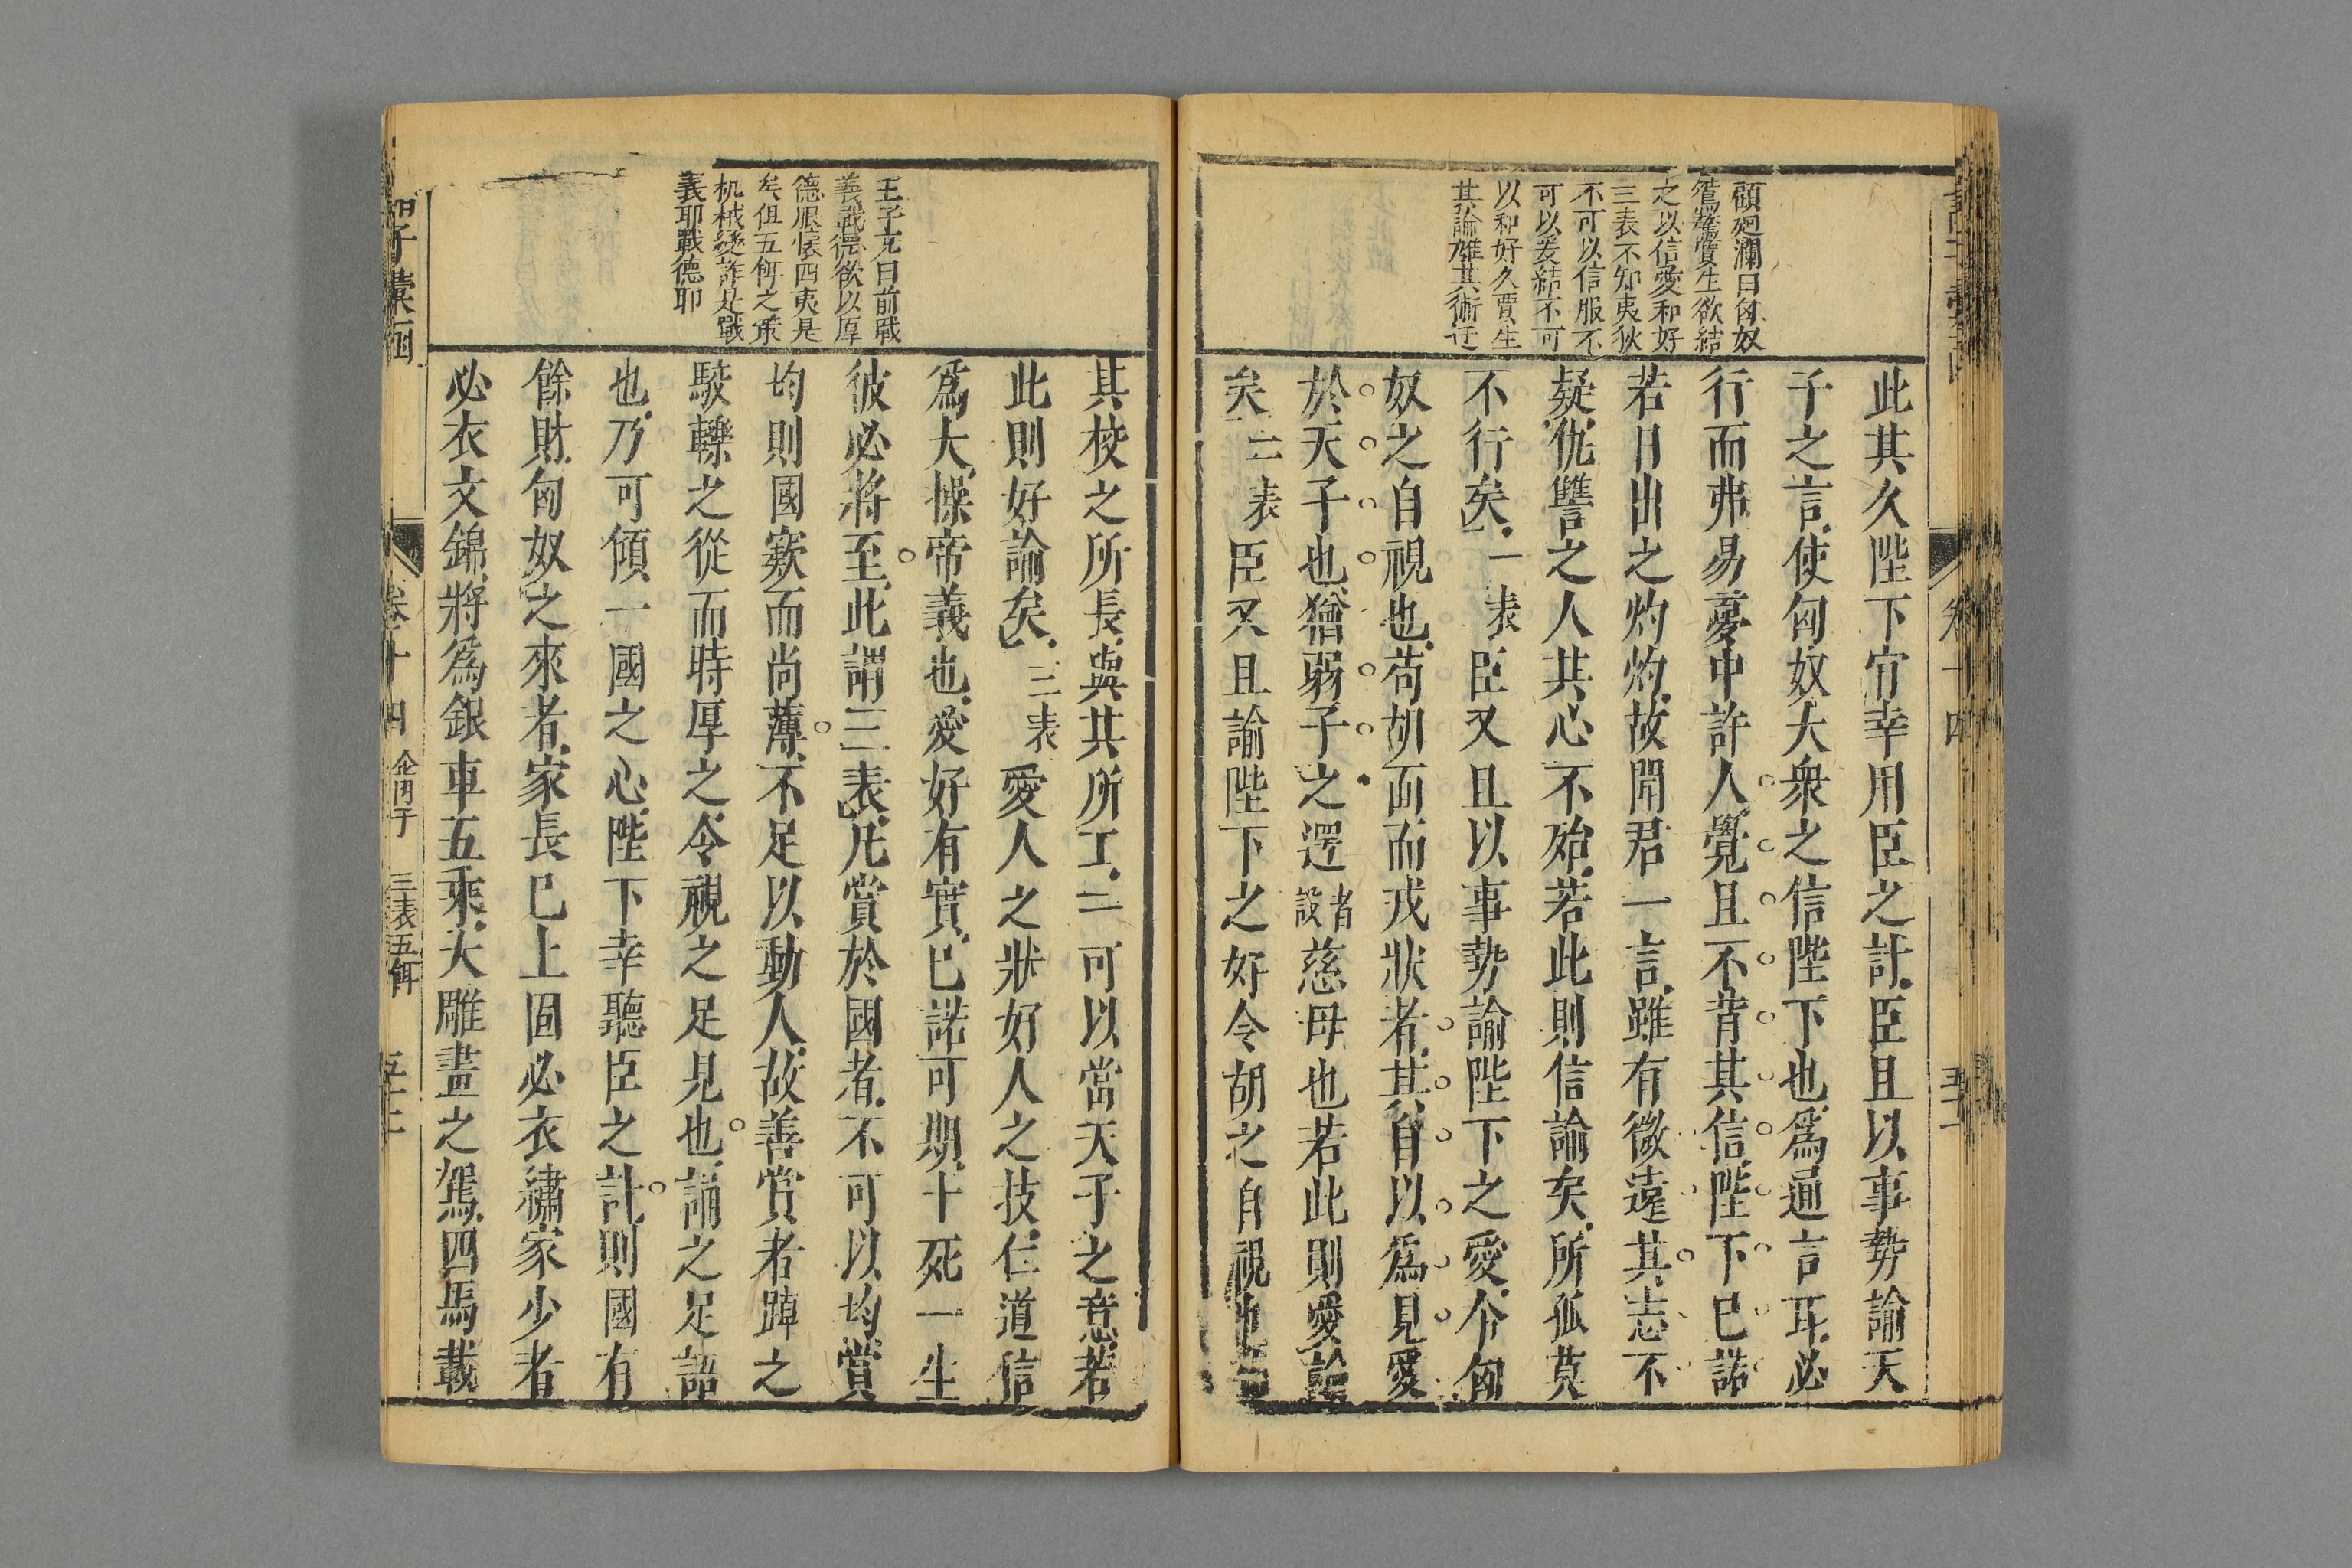 顧廻瀾曰匈奴
鴛騺賈生欲結
之以信愛和好
三表不知夷狄
不可以信服不
可以爰結不可
以和好久賈生
其論雄其術迂
此其久陛下肎幸用臣之計臣且以事勢諭天
子之言使匈奴大衆之信陛下也爲通言耳必
行而弗易夢中許人覺且不背其信陛下已諾
若日出之灼灼故聞君一言雖有微遠其志不
疑仇讐之人其心不殆若此則信諭矣所孤莫
不行矣一表臣又且以事勢諭陛下之愛令匈
奴之自視也苟胡面而戎狀者其自以爲見愛
於天子也猶弱子之遌者設慈母也若此則愛諭
矣二表臣又且諭陛下之好令胡之自視也
王子充曰前戰
義戰德欲以厚
德服懷四夷是
矣但五餌之策
机械變詐是戰
義耶戰德耶
其校之所長與其所工二可以當天子之意若
此則好諭矣三表愛人之狀好人之技仁道信
爲大操帝義也愛好有實已諾可期十死一生
彼必將至此謂三表凡賞於國者不可以均賞
均則國窽而尚薄不足以動人故善賞者踔之
駮轢之從而時厚之令視之足見也誦之足語
也乃可傾一國之心陛下幸聽臣之計則國有
餘財匈奴之來者家長已上固必衣繡家少者
必衣文錦將爲銀車五乘大雕畫之駕四馬載
卷十四 金門子 三表五餌